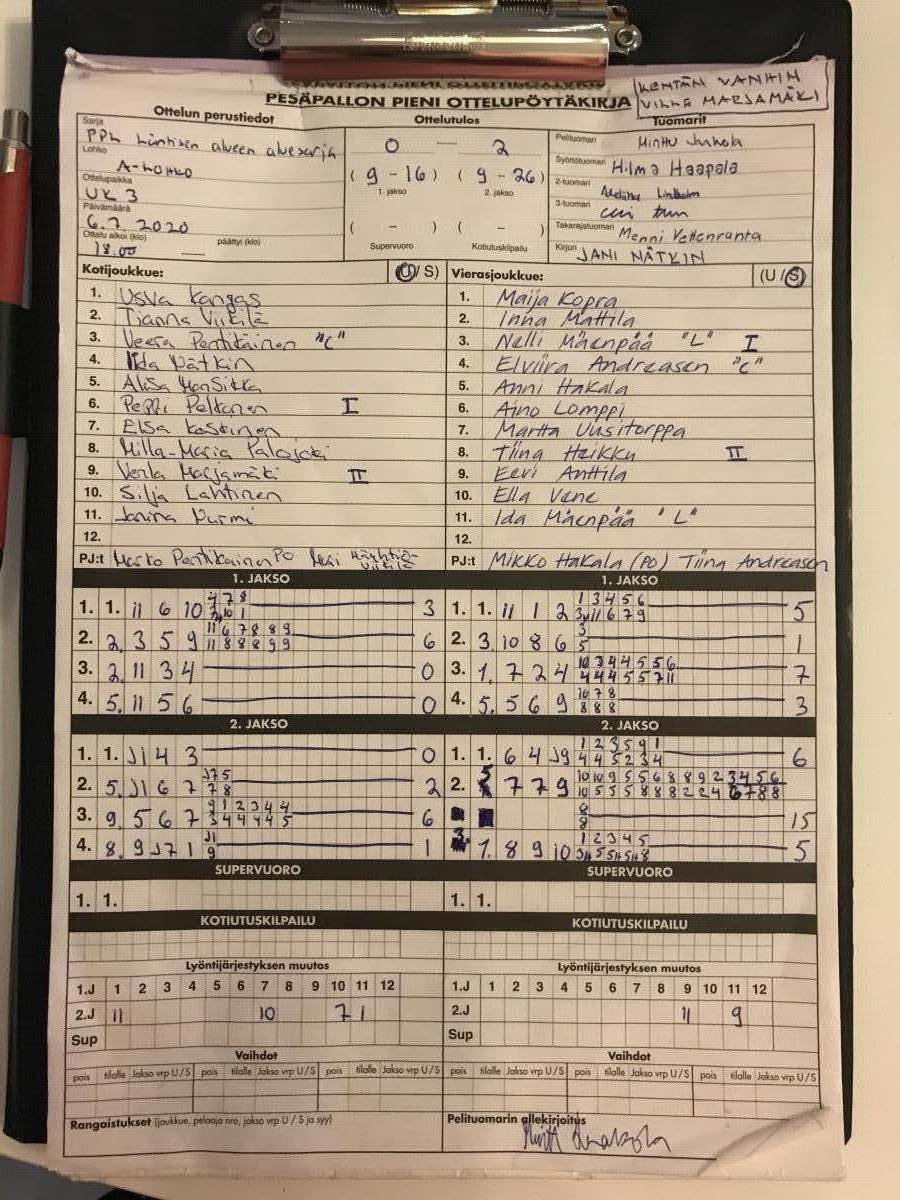 KENTÄN VANHIN
VILMA MARSAMÄKI
PESÄPALLON PIENI OTTELUPÖYTÄKIRJA
Ottelun perustiedot
Ottelutulos
Tuomarit
Sarja
PPL Läntisen alueen aluesarja
Lohko
A-LOHKO
Ottelupaikka
UK 3
Päivämäärä
6.7.2020
Ottelu alkoi (klo) päättyi (klo)
18.00
0 — 2
( 9 - 16 ) ( 9 - 26 )
1. jakso 2. jakso
( - ) ( - )
Supervuoro Kotiutuskilpailu
Pelituomari
Minttu
Syöttötuomari Hilma Haapala
2-tuomari
3-tuomari
Takarajatuomari Menni Vettenranta
Kirjuri JANI NÄTKIN
Kotijoukkue: (U / S)
1. Usva Kangas
2. Tianna Viikilä
3. Veera Pentikäinen "C"
4. Iida Nätkin
5. Alisa Mansikka
6. Peppi Peltonen I
7. Elsa Koskinen
8. Milla-Maria Palojoki
9. Venla Marjamäki II
10. Silja Lahtinen
11. Janina Nurmi
12.
PJ:t Marko Pentikäinen PO
Vierasjoukkue: (U / S)
1. Maija Kopra
2. Inna Mattila
3. Nelli Mäenpää "L" I
4. Elviira Andreasen "C"
5. Anni Hakala
6. Aino Lomppi
7. Martta Uusitorppa
8. Tiina Heikku II
9. Eevi Anttila
10. Ella Vene
11. Ida Mäenpää "L"
12.
PJ:t MIKKO HAKALA (PO) Tiina Andreasen
1. JAKSO
1. 1. 11 6 10 3
2. 2. 3 5 9 11 6 7 8 8 9 6
11 8 8 8 9 9
3. 2. 11 3 4 0
4. 5. 11 5 6 0
2. JAKSO
1. 1. J1 4 3 0
2. 5. J1 6 7 J7 5 2
7 8
3. 9. 5 6 7 9 1 2 3 4 4 6
3 4 4 4 4 5
4. 8. 9 J7 1 J1 1
9
SUPERVUORO
1. 1.
KOTIUTUSKILPAILU
1. JAKSO
1. 1. 11 1 2 1 3 4 5 6 5
2. 3. 10 8 6 3 1
5
3. 1. 7 2 4 10 3 4 4 5 5 6 7
4 4 4 5 5 7 11
4. 5. 5 6 9 10 7 8 3
8 8 8
2. JAKSO
1. 1. 6 4 J9 1 2 3 5 9 1 6
4 4 5 2 3 4
2. 5 7 7 9 10 10 9 5 5 6 8 8 9 2 3 4 5 6
10 5 5 5 8 8 8 8 2 2 4 6 7 8 8
3. 8 15
8
3. 1. 8 9 10 1 2 3 4 5 5
SUPERVUORO
1. 1.
KOTIUTUSKILPAILU
Lyöntijärjestyksen muutos
1.J 1 2 3 4 5 6 7 8 9 10 11 12
2.J 11 10 7 1
Sup
Vaihdot
pois tilalle Jakso vrp U / S pois tilalle Jakso vrp U / S pois tilalle Jakso vrp U / S
Lyöntijärjestyksen muutos
1.J 1 2 3 4 5 6 7 8 9 10 11 12
2.J 11 9
Sup
Vaihdot
pois tilalle Jakso vrp U / S pois tilalle Jakso vrp U / S pois tilalle Jakso vrp U / S
Rangaistukset (joukkue, pelaaja nro, jakso vrp U / S ja syy)
Pelituomarin allekirjoitus